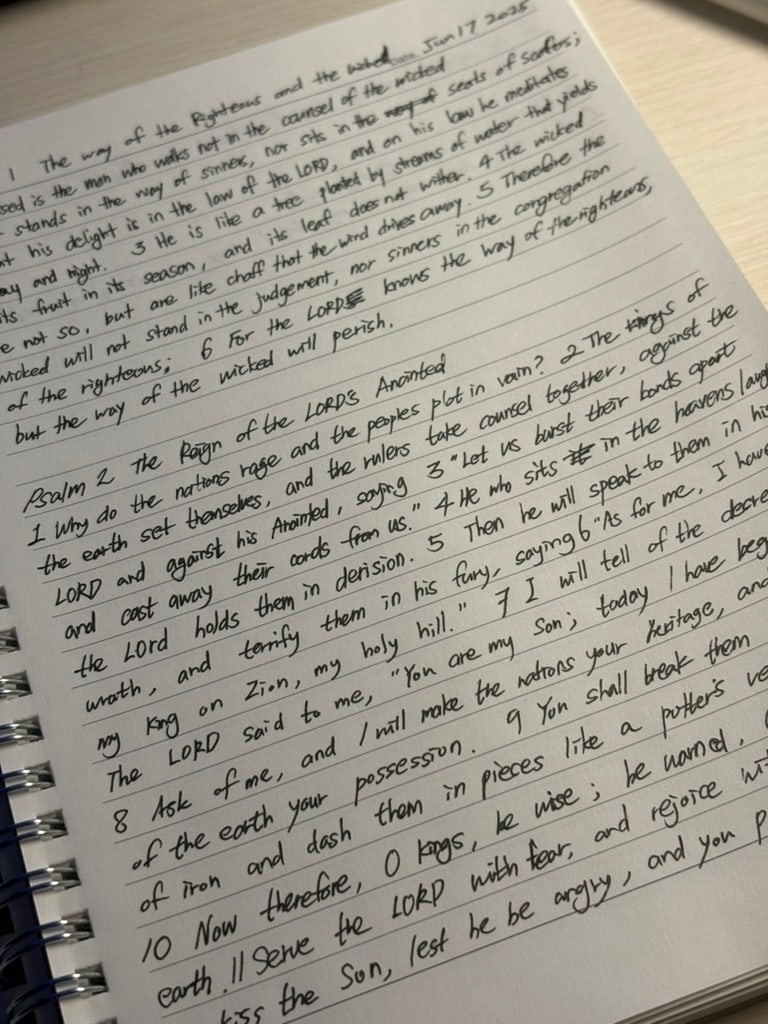 Jun 17 2025
1 The way of the Righteous and the wicked
sed is the man who walks not in the counsel of the wicked
stands in the way of sinners, nor sits in the way of seats of scoffers;
t his delight is in the law of the LORD, and on his law he meditates
ay and night. 3 He is like a tree planted by streams of water that yields
its fruit in its season, and its leaf does not wither. 4 The wicked
e not so, but are like chaff that the wind drives away. 5 Therefore the
wicked will not stand in the judgement, nor sinners in the congregation
of the righteous; 6 For the LORD knows the way of the righteous,
but the way of the wicked will perish.
Psalm 2 The Reign of the LORD'S Anointed
1 Why do the nations rage and the peoples plot in vain? 2 The kings of
the earth set themselves, and the rulers take counsel together, against the
LORD and against his Anointed, saying 3 "Let us burst their bonds apart
and cast away their cords from us." 4 He who sits in the heavens laug
the Lord holds them in derision. 5 Then he will speak to them in his
wrath, and terrify them in his fury, saying 6 "As for me, I have
my King on Zion, my holy hill." 7 I will tell of the decre
The LORD said to me, "You are my Son; today I have beg
8 Ask of me, and I will make the nations your heritage, and
of the earth your possession. 9 You shall break them
of iron and dash them in pieces like a potter's ve
10 Now therefore, O kings, be wise; be warned,
earth. 11 Serve the LORD with fear, and rejoice wit
kiss the Son, lest he be angry, and you p